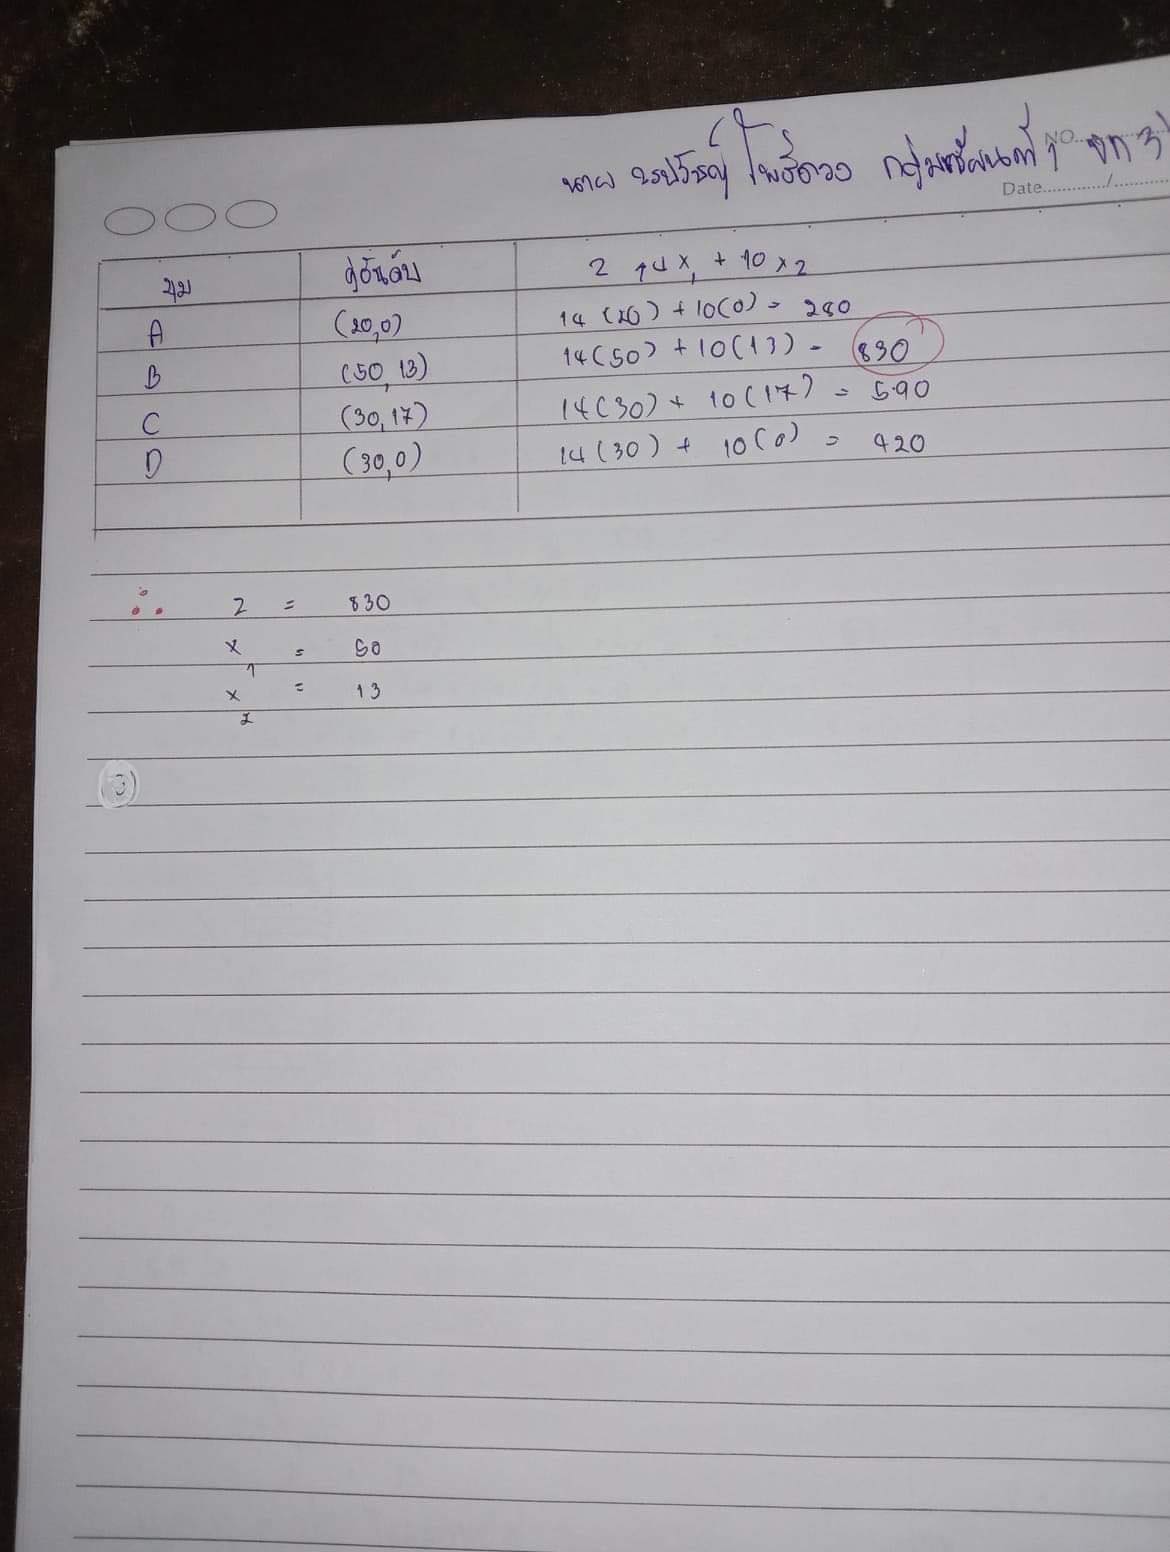 นาย โพธิ์ดวง กลุ่มเรียนที่ 1
NO.
Date............/...........
มุม คู่อันดับ Z 14x₁ + 10x₂
A (20,0) 14(20) + 10(0) = 280
B (50,13) 14(50) + 10(13) = 830
C (30,17) 14(30) + 10(17) = 590
D (30,0) 14(30) + 10(0) = 420
∴ Z = 830
x₁ = 50
x₂ = 13
3)